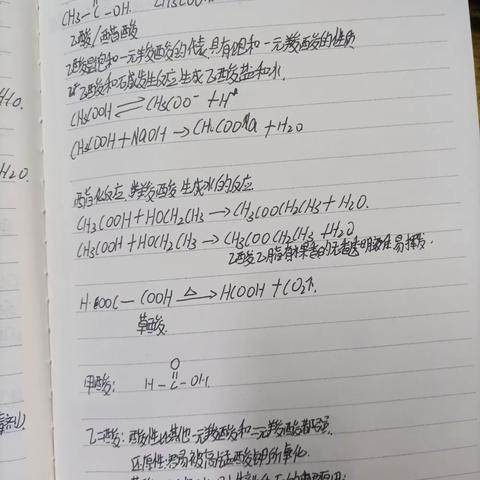 O
CH3-C-OH. CH3COO
乙酸/醋酸
乙酸是饱和一元羧酸的代表,具有饱和一元羧酸的性质
乙酸和石碱发生反应生成乙酸盐和水.
CH3COOH ⇌ CH3COO⁻ + H⁺
CH3COOH + NaOH → CH3COONa + H2O
酯化反应 醇 羧酸 生成水的反应
CH3COOH + HOCH2CH3 → CH3COOCH2CH3 + H2O.
CH3COOH + HOCH2CH3 → CH3COOCH2CH3 + H2O
乙酸乙脂有果香的无色透明液体易挥发.
H·OOC — COOH △→ HCOOH + CO2↑.
草酸.
甲酸: O
H-C-OH.
乙二酸: 酸性比其他一元羧酸和二元羧酸都强.
还原性:易被高锰酸钾所氧化.
H2O.